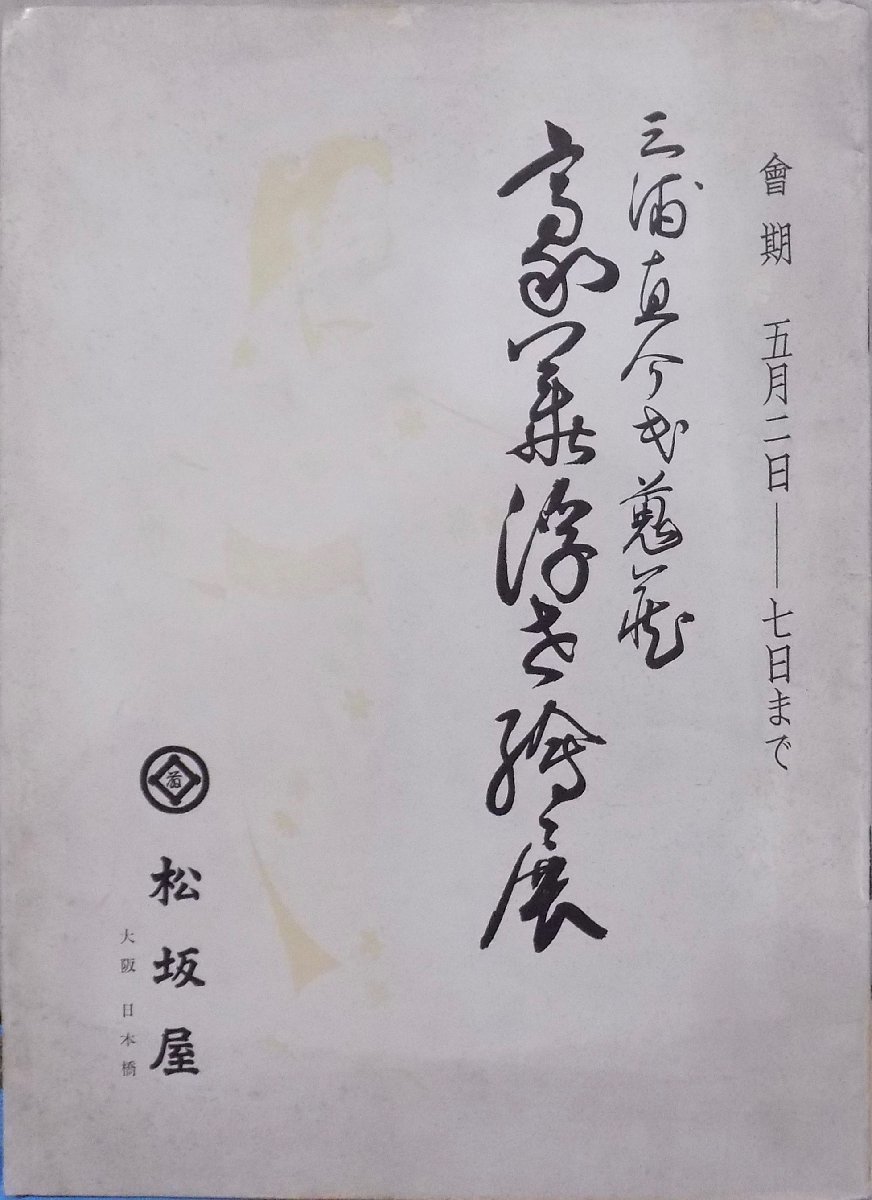 會期　五月二日――七日まで
三浦直介氏蒐蔵
豪華浮世繪展
松坂屋
大阪　日本橋